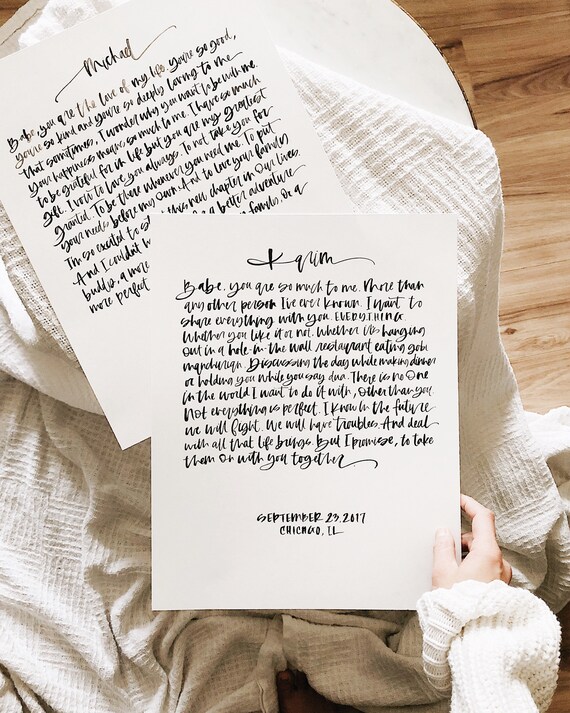 Michael
Babe, you are the love of my life. you're so good,
you're so kind and you're so deeply loving to me
that sometimes, I wonder why you want to be with me.
Your happiness means so much to me. I have so much
to be grateful for in life but you are my greatest
gift. I vow to love you always. To not take you for
granted. To be there whenever you need me. To put
your needs before my own. And to love your family
I'm so excited to this new chapter in our lives.
And I couldn't a better adventure
buddy, a more family, or a
more perfect
Karim
Babe, you are so much to me. More than
any other person I've ever known. I want to
share everything with you. EVERYTHING
Whether you like it or not. Whether it's hanging
out in a hole-in-the wall restaurant eating gobi
manchurian. Discussing the day while making dinner
or holding you while you say dua. There is no one
in the world I want to do it with, other than you.
Not everything is perfect. I know in the future
we will fight. We will have troubles. And deal
with all that life brings. But I promise, to take
them on with you together
SEPTEMBER 23, 2017
CHICAGO, IL